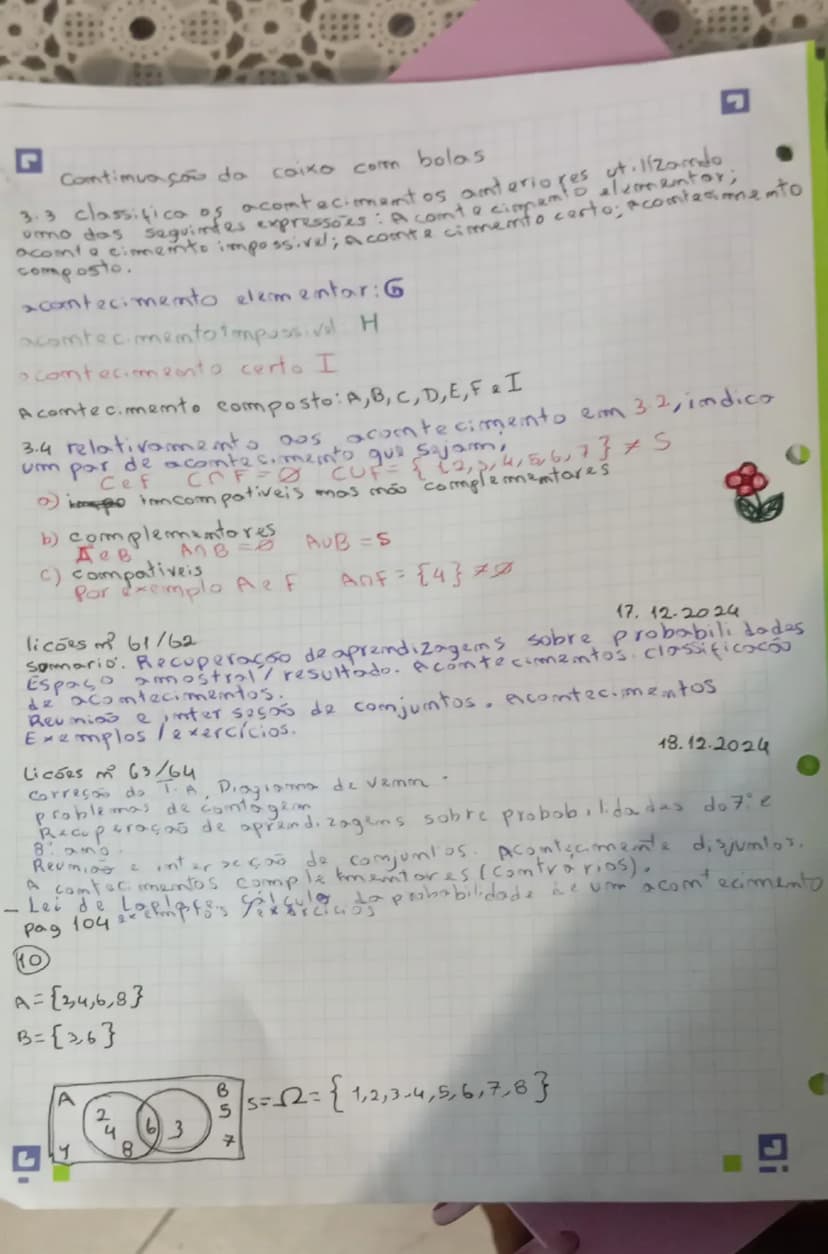 Continuação da caixa com bolas
3.3 classifica os acontecimentos anteriores utilizando
uma das seguintes expressões: Acontecimento elementar;
acontecimento impossível; acontecimento certo; acontecimento
composto.
acontecimento elementar: G
acontecimento impossivel H
acontecimento certo I
Acontecimento composto: A, B, C, D, E, F e I
3.4 relativamente aos acontecimento em 3.2, indica
um par de acontecimento que sejam,
C e F C∩F = ∅ CUF = {1,2,3,4,5,6,7} ≠ S
a) incompativeis mas não complementares
b) complementares
A e B A∩B = ∅ AUB = S
c) compativeis
Por exemplo A e F A∩F = {4} ≠ ∅
17.12.2024
licões nº 61/62
sumario. Recuperação de aprendizagens sobre probabilidades
Espaço amostral / resultado. Acontecimentos. classificação
de acontecimentos.
Reunião e interseção de conjuntos. Acontecimentos
Exemplos / exercícios.
18.12.2024
Licões nº 63/64
correção do T.A. Diagrama de venn.
problemas de contagem
Recuperação de aprendizagens sobre probabilidades do 7º e
8º ano.
Reunião e interseção de conjuntos. Acontecimento disjuntos.
Acontecimentos complementares (contrarios).
- Lei de Laplace. Cálculo da probabilidade de um acontecimento
exemplos exercícios
pag 104
10
A = {2,4,6,8}
B = {3,6}
A B S = Ω = {1,2,3,4,5,6,7,8}
2 5
4 6 3
1 8 7